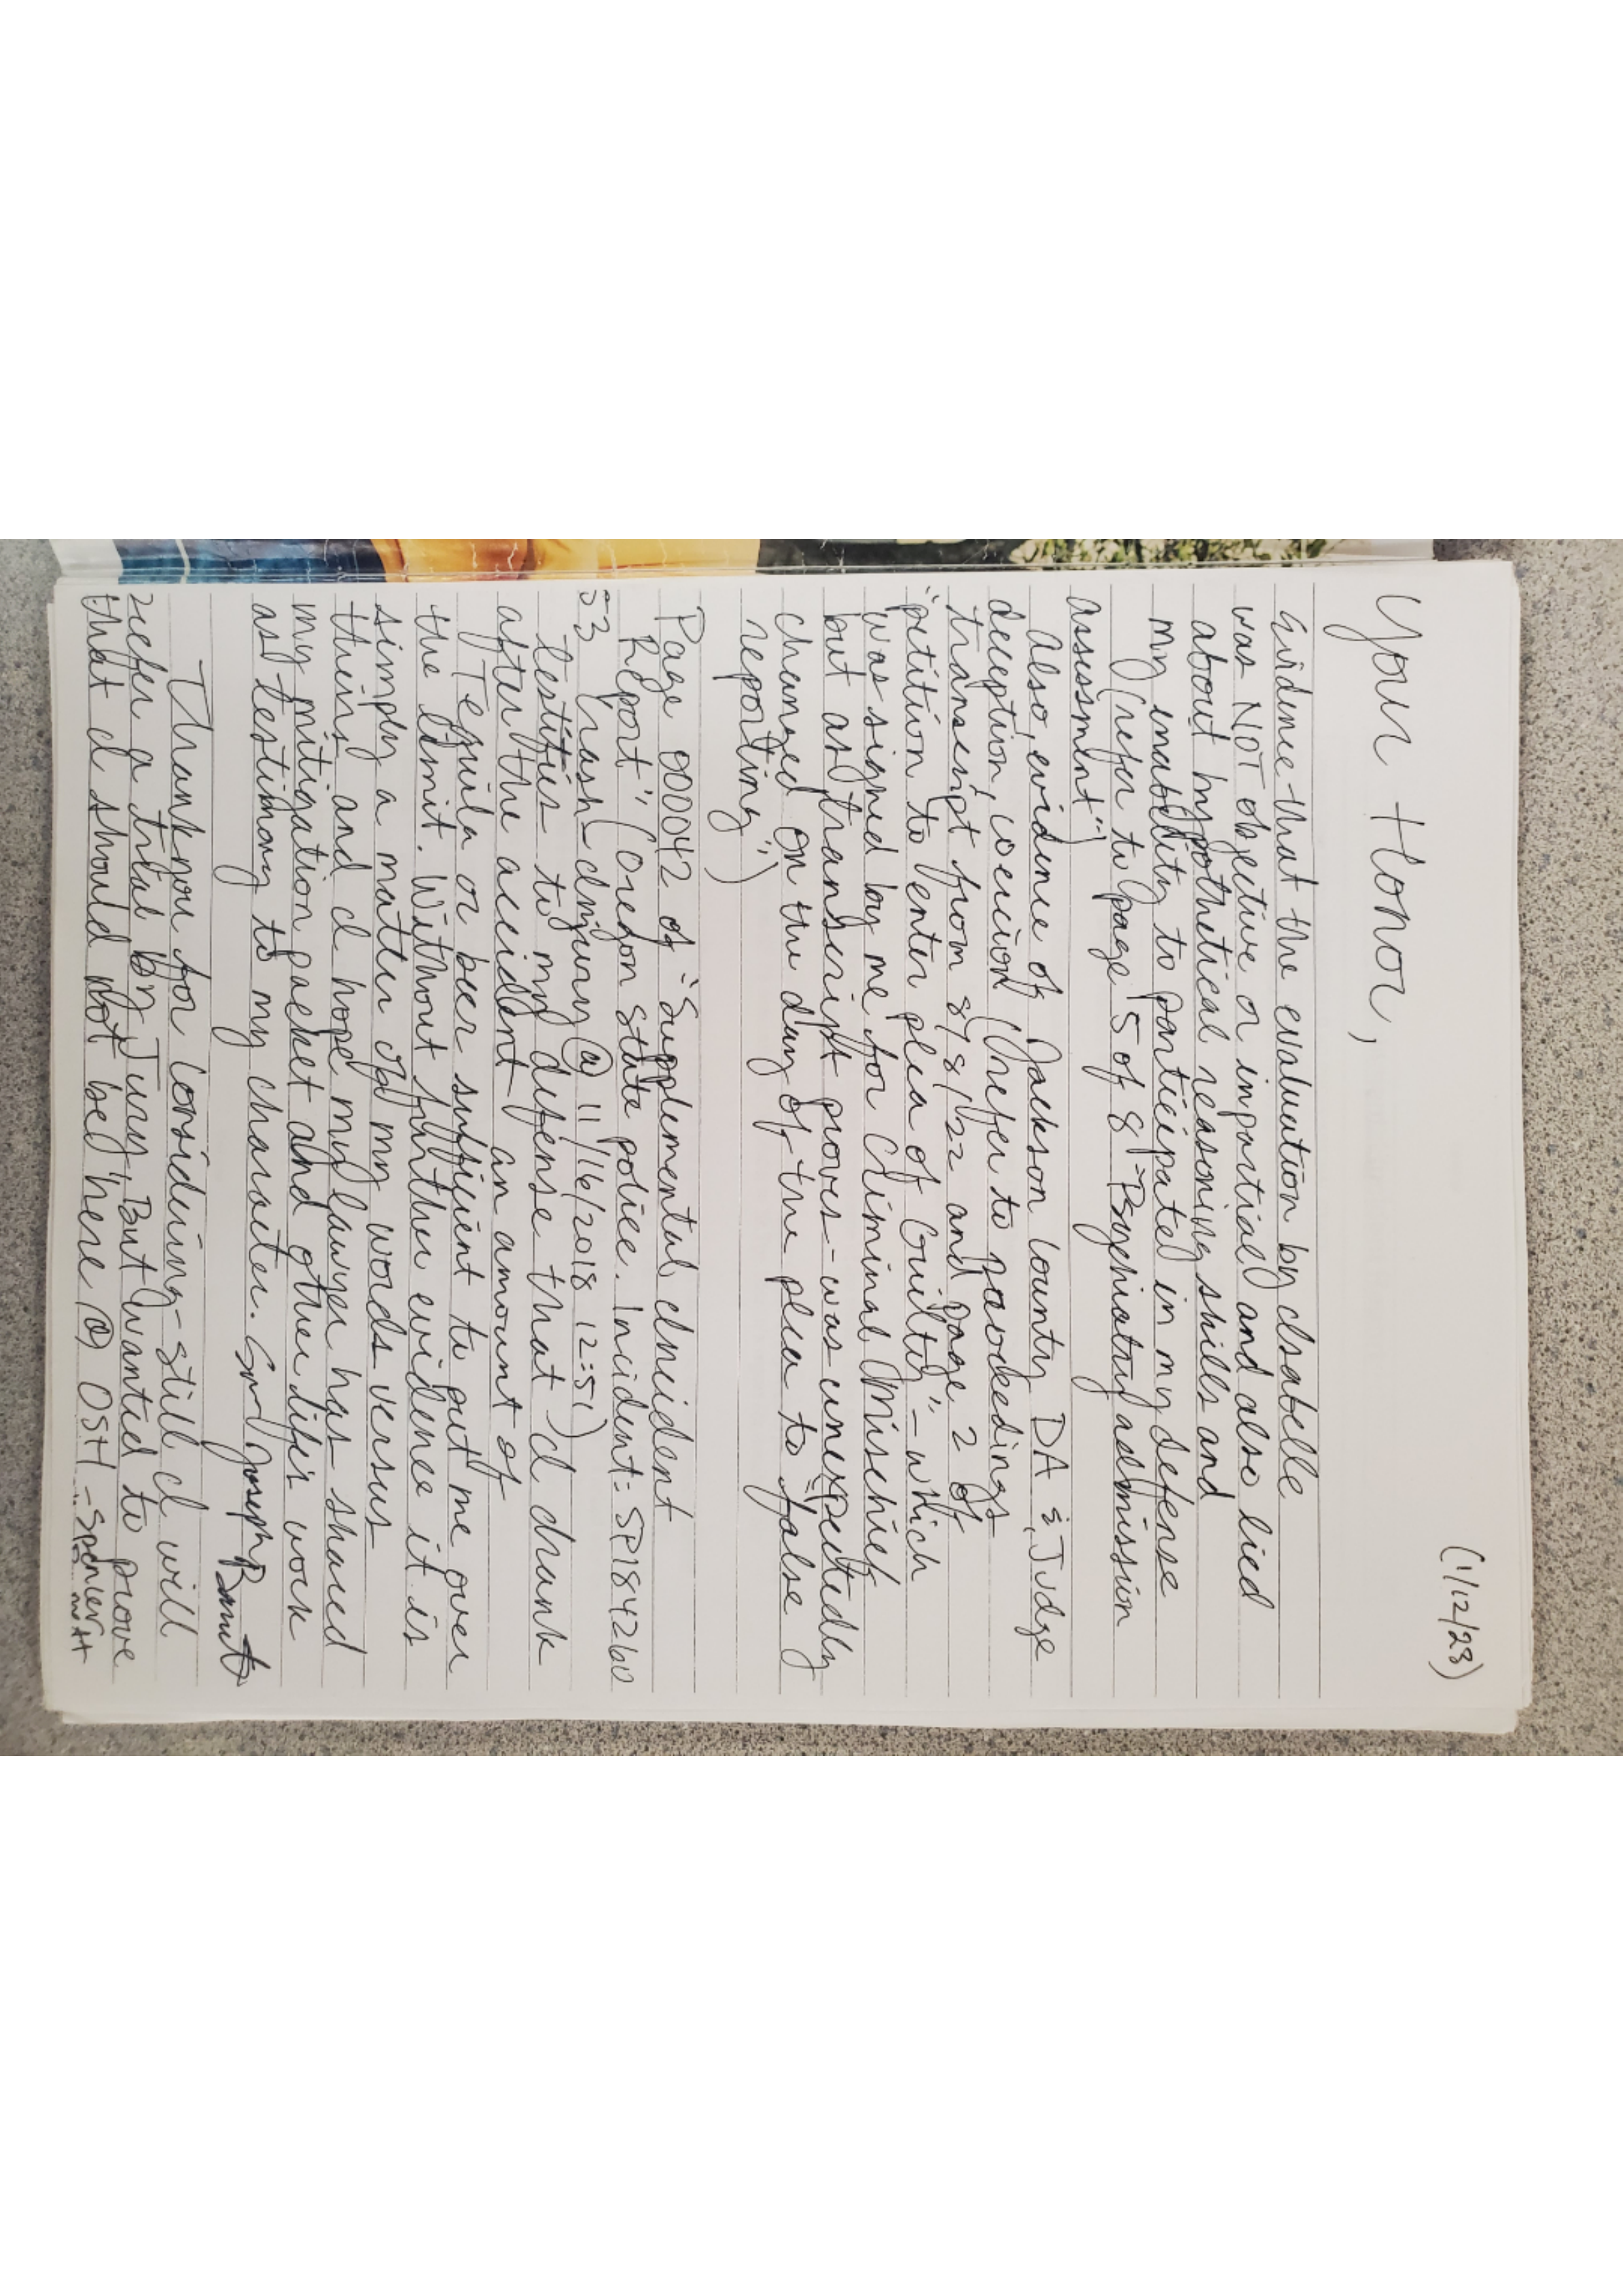 (1/12/23)
Your Honor,
Evidence that the evaluation by Isabelle
was NOT objective or impartial and also lied
about hypothetical reasoning skills and
my inability to participated in my defense
(refer to page 5 of 8 "Psychiatric admission
assessment")
Also, evidence of Jackson County DA & Judge
deception, coercion (refer to proceedings
transcript from 8/8/22 and page 2 of
"petition to enter plea of Guilty" - which
was signed by me for Criminal Mischief
but as transcript proves - was unexpectedly
changed on the day of the plea to "false
reporting")
Page 000042 of "Supplemental Incident
Report" (Oregon State police. Incident: SP184260
53 Crash-Injury @ 11/16/2018 12:51)
testifies to my defense that I drank
after the accident an amount of
Tequila or beer sufficient to put me over
the limit. Without further evidence it is
simply a matter of my words versus
theirs and I hope my lawyer has shared
my mitigation packet and other life's work
as testimony to my character. Joseph
Thankyou for considering - still I will
prefer a trial by Jury, But wanted to prove
that I should not be here @ OSH -